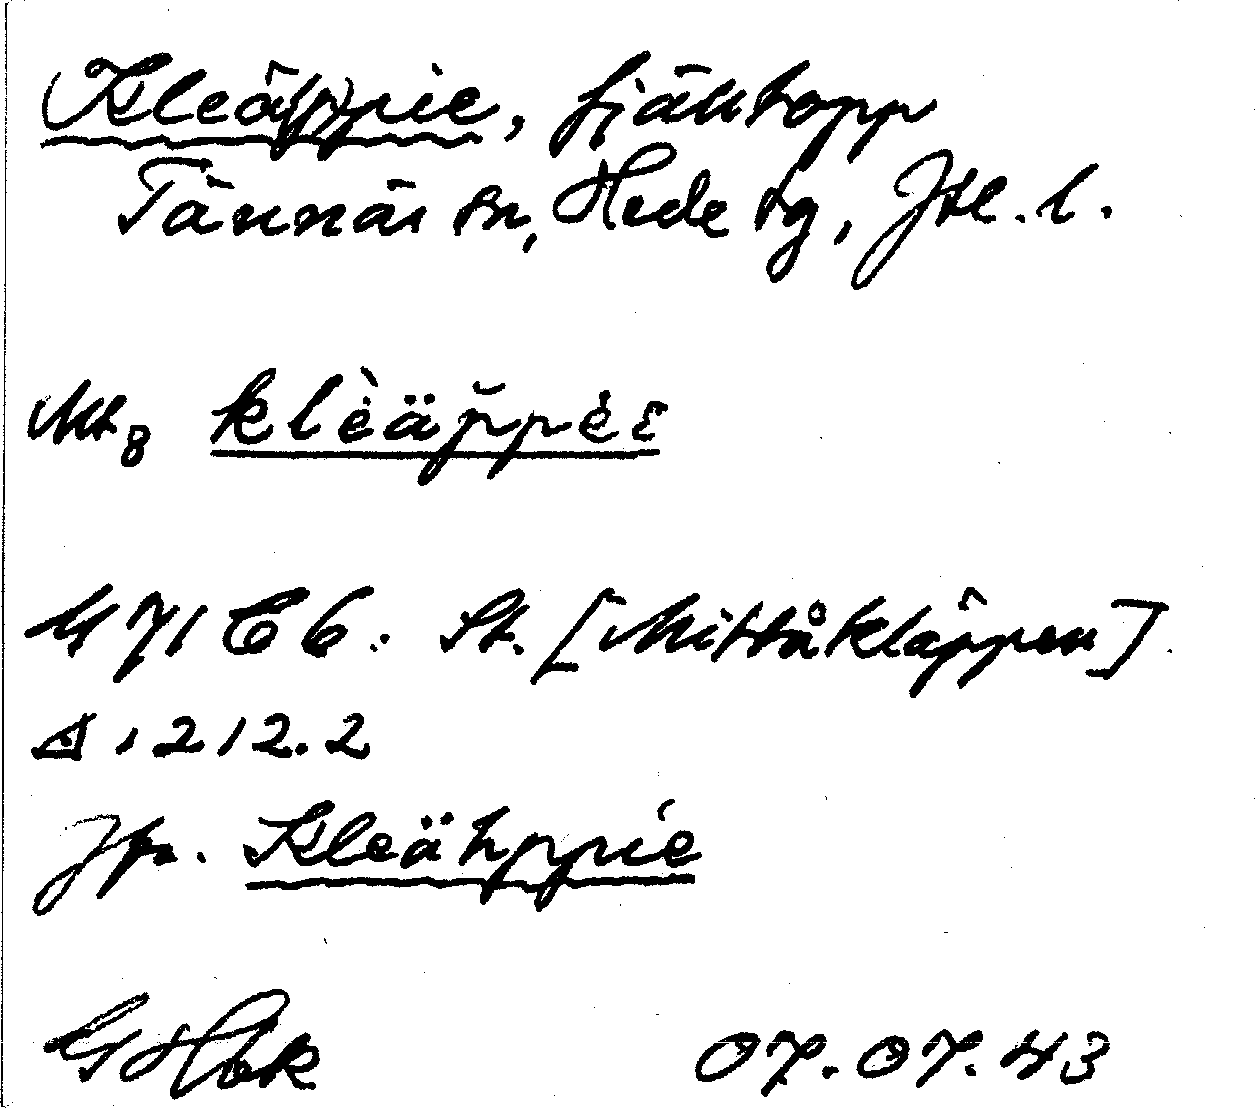 (Kleä(p)pie, fjälltopp
Tännäs sn, Hede tg, Jtl. l.
kleäppèe
G 71 C6. St. [Mittåkläppen].
1212.2
Jfr. Kleähppie
07.07.43